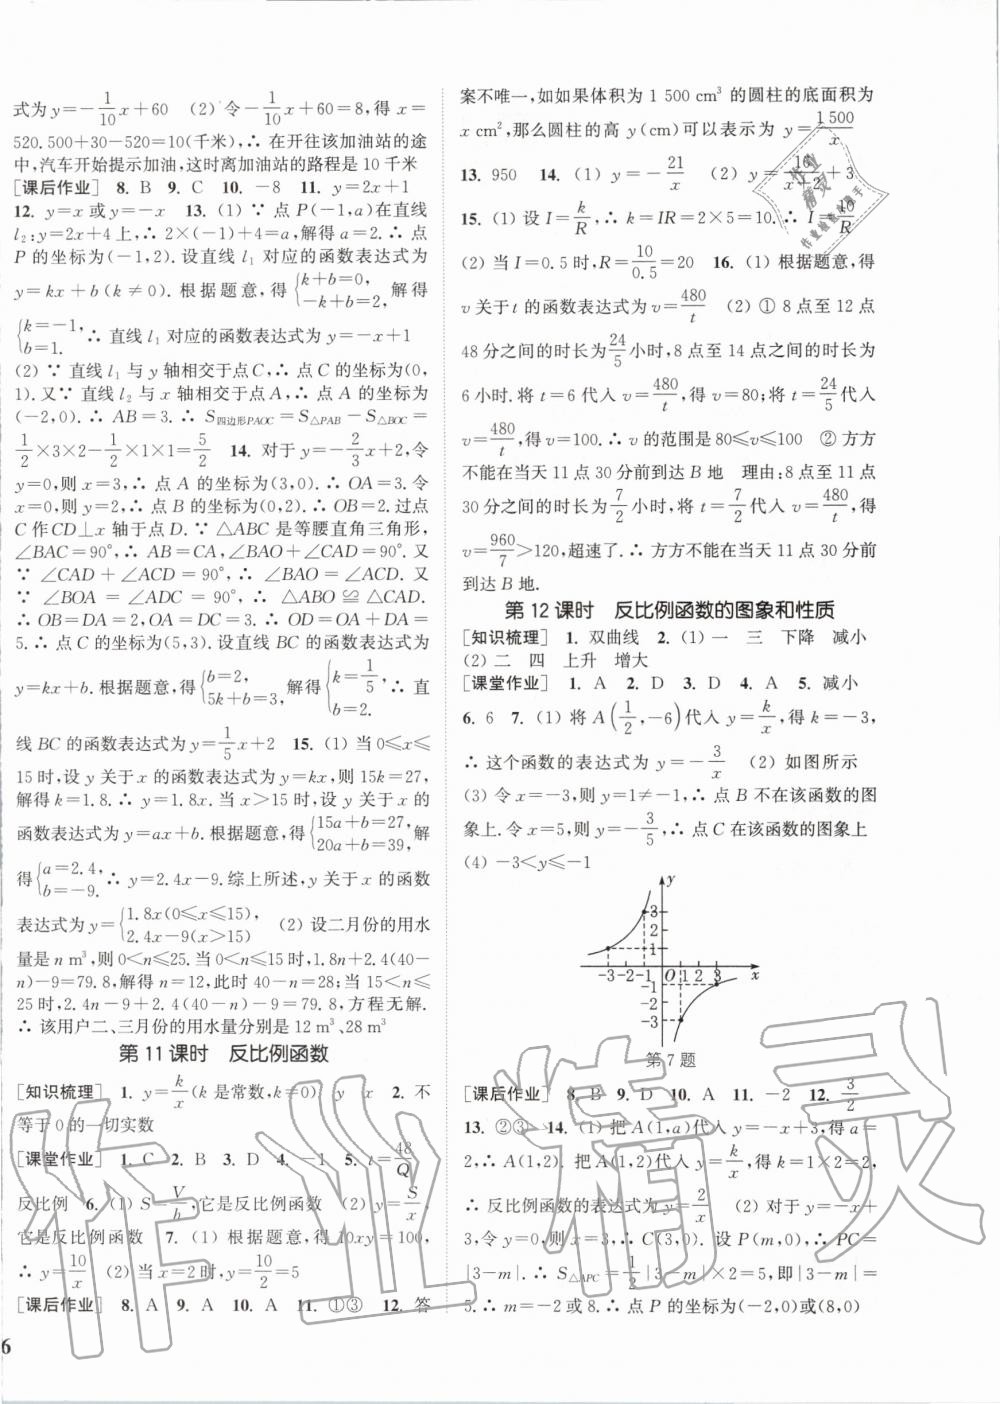 式为 y=-1/10x+60 (2) 令-1/10x+60=8,得 x=
520.500+30-520=10(千米),∴ 在开往该加油站的途
中,汽车开始提示加油,这时离加油站的路程是 10 千米
[课后作业] 8. B 9. C 10. -8 11. y=2x+1
12. y=x 或 y=-x 13. (1) ∵ 点 P(-1,a)在直线
l₂:y=2x+4 上,∴ 2×(-1)+4=a,解得 a=2.∴ 点
P 的坐标为(-1,2). 设直线 l₁ 对应的函数表达式为
y=kx+b(k≠0). 根据题意,得{k+b=0, -k+b=2, 解得
{k=-1, b=1. ∴ 直线 l₁ 对应的函数表达式为 y=-x+1
(2) ∵ 直线 l₁ 与 y 轴相交于点 C,∴ 点 C 的坐标为(0,
1). 又∵ 直线 l₂ 与 x 轴相交于点 A,∴ 点 A 的坐标为
(-2,0). ∴ AB=3. ∴ S四边形PAOC=S△PAB-S△BOC=
1/2×3×2-1/2×1×1=5/2 14. 对于 y=-2/3x+2,令
y=0,则 x=3,∴ 点 A 的坐标为(3,0). ∴ OA=3. 令
x=0,则 y=2,∴ 点 B 的坐标为(0,2). ∴ OB=2. 过点
C 作CD⊥x 轴于点 D. ∵ △ABC 是等腰直角三角形,
∠BAC=90°,∴ AB=CA,∠BAO+∠CAD=90°. 又
∵ ∠CAD+∠ACD=90°,∴ ∠BAO=∠ACD. 又
∵ ∠BOA=∠ADC=90°,∴ △ABO≌△CAD.
∴ OB=DA=2,OA=DC=3. ∴ OD=OA+DA=
5. ∴ 点 C 的坐标为(5,3). 设直线 BC 的函数表达式为
y=kx+b. 根据题意,得{b=2, 5k+b=3, 解得{k=1/5, b=2. ∴ 直
线 BC 的函数表达式为 y=1/5x+2 15. (1) 当 0≤x≤
15 时,设 y 关于 x 的函数表达式为 y=kx,则 15k=27,
解得 k=1.8. ∴ y=1.8x. 当 x>15 时,设 y 关于 x 的
函数表达式为 y=ax+b. 根据题意,得{15a+b=27, 20a+b=39, 解
得{a=2.4, b=-9. ∴ y=2.4x-9. 综上所述,y 关于 x 的函数
表达式为 y={1.8x(0≤x≤15), 2.4x-9(x>15) (2) 设二月份的用水
量是 n m³,则 0<n≤25. 当 0<n≤15 时,1.8n+2.4(40-
n)-9=79.8,解得 n=12,此时 40-n=28;当 15<n≤
25 时,2.4n-9+2.4(40-n)-9=79.8,方程无解.
∴ 该用户二、三月份的用水量分别是 12 m³、28 m³
第 11 课时 反比例函数
[知识梳理] 1. y=k/x(k 是常数,k≠0) y x 2. 不
等于 0 的一切实数
[课堂作业] 1. C 2. B 3. D 4. -1 5. t=48/Q
反比例 6. (1) S=V/h,它是反比例函数 (2) y=S/x,
它是反比例函数 7. (1) 根据题意,得 10xy=100,
∴ y=10/x (2) 当 x=2 时,y=10/2=5
[课后作业] 8. A 9. A 10. A 11. ①③ 12. 答
6
案不唯一,如如果体积为 1 500 cm³ 的圆柱的底面积为
x cm²,那么圆柱的高 y(cm)可以表示为 y=1 500/x
13. 950 14. (1) y=-21/x (2) y=-14/x+2+3
15. (1) 设 I=k/R,∴ k=IR=2×5=10. ∴ I=10/R
(2) 当 I=0.5 时,R=10/0.5=20 16. (1) 根据题意,得
v 关于 t 的函数表达式为 v=480/t (2) ① 8 点至 12 点
48 分之间的时长为24/5小时,8 点至 14 点之间的时长为
6 小时. 将 t=6 代入 v=480/t,得 v=80;将 t=24/5代入
v=480/t,得 v=100. ∴ v 的范围是 80≤v≤100 ② 方方
不能在当天 11 点 30 分前到达 B 地 理由:8 点至 11 点
30 分之间的时长为7/2小时,将 t=7/2代入 v=480/t,得
v=960/7>120,超速了. ∴ 方方不能在当天 11 点 30 分前
到达 B 地.
第 12 课时 反比例函数的图象和性质
[知识梳理] 1. 双曲线 2. (1) 一 三 下降 减小
(2) 二 四 上升 增大
[课堂作业] 1. A 2. D 3. D 4. A 5. 减小
6. 6 7. (1) 将 A(1/2,-6)代入 y=k/x,得 k=-3,
∴ 这个函数的表达式为 y=-3/x (2) 如图所示
(3) 令 x=-3,则 y=1≠-1,∴ 点 B 不在该函数的图
象上. 令 x=5,则 y=-3/5,∴ 点 C 在该函数的图象上
(4) -3<y≤-1
y
3
2
1
-3 -2 -1 O 1 2 3 x
-1
-2
-3
第 7 题
[课后作业] 8. B 9. D 10. A 11. -2 12. 3/2
13. ②③ 14. (1) 把 A(1,a)代入 y=-x+3,得 a=
2,∴ A(1,2). 把 A(1,2)代入 y=k/x,得 k=1×2=2,
∴ 反比例函数的表达式为 y=2/x (2) 对于 y=-x+
3,令 y=0,则 x=3,∴ C(3,0). 设 P(m,0),∴ PC=
|3-m|. ∴ S△APC=1/2|3-m|×2=5,即|3-m|=
5. ∴ m=-2 或 8. ∴ 点 P 的坐标为(-2,0)或(8,0)
作业精灵